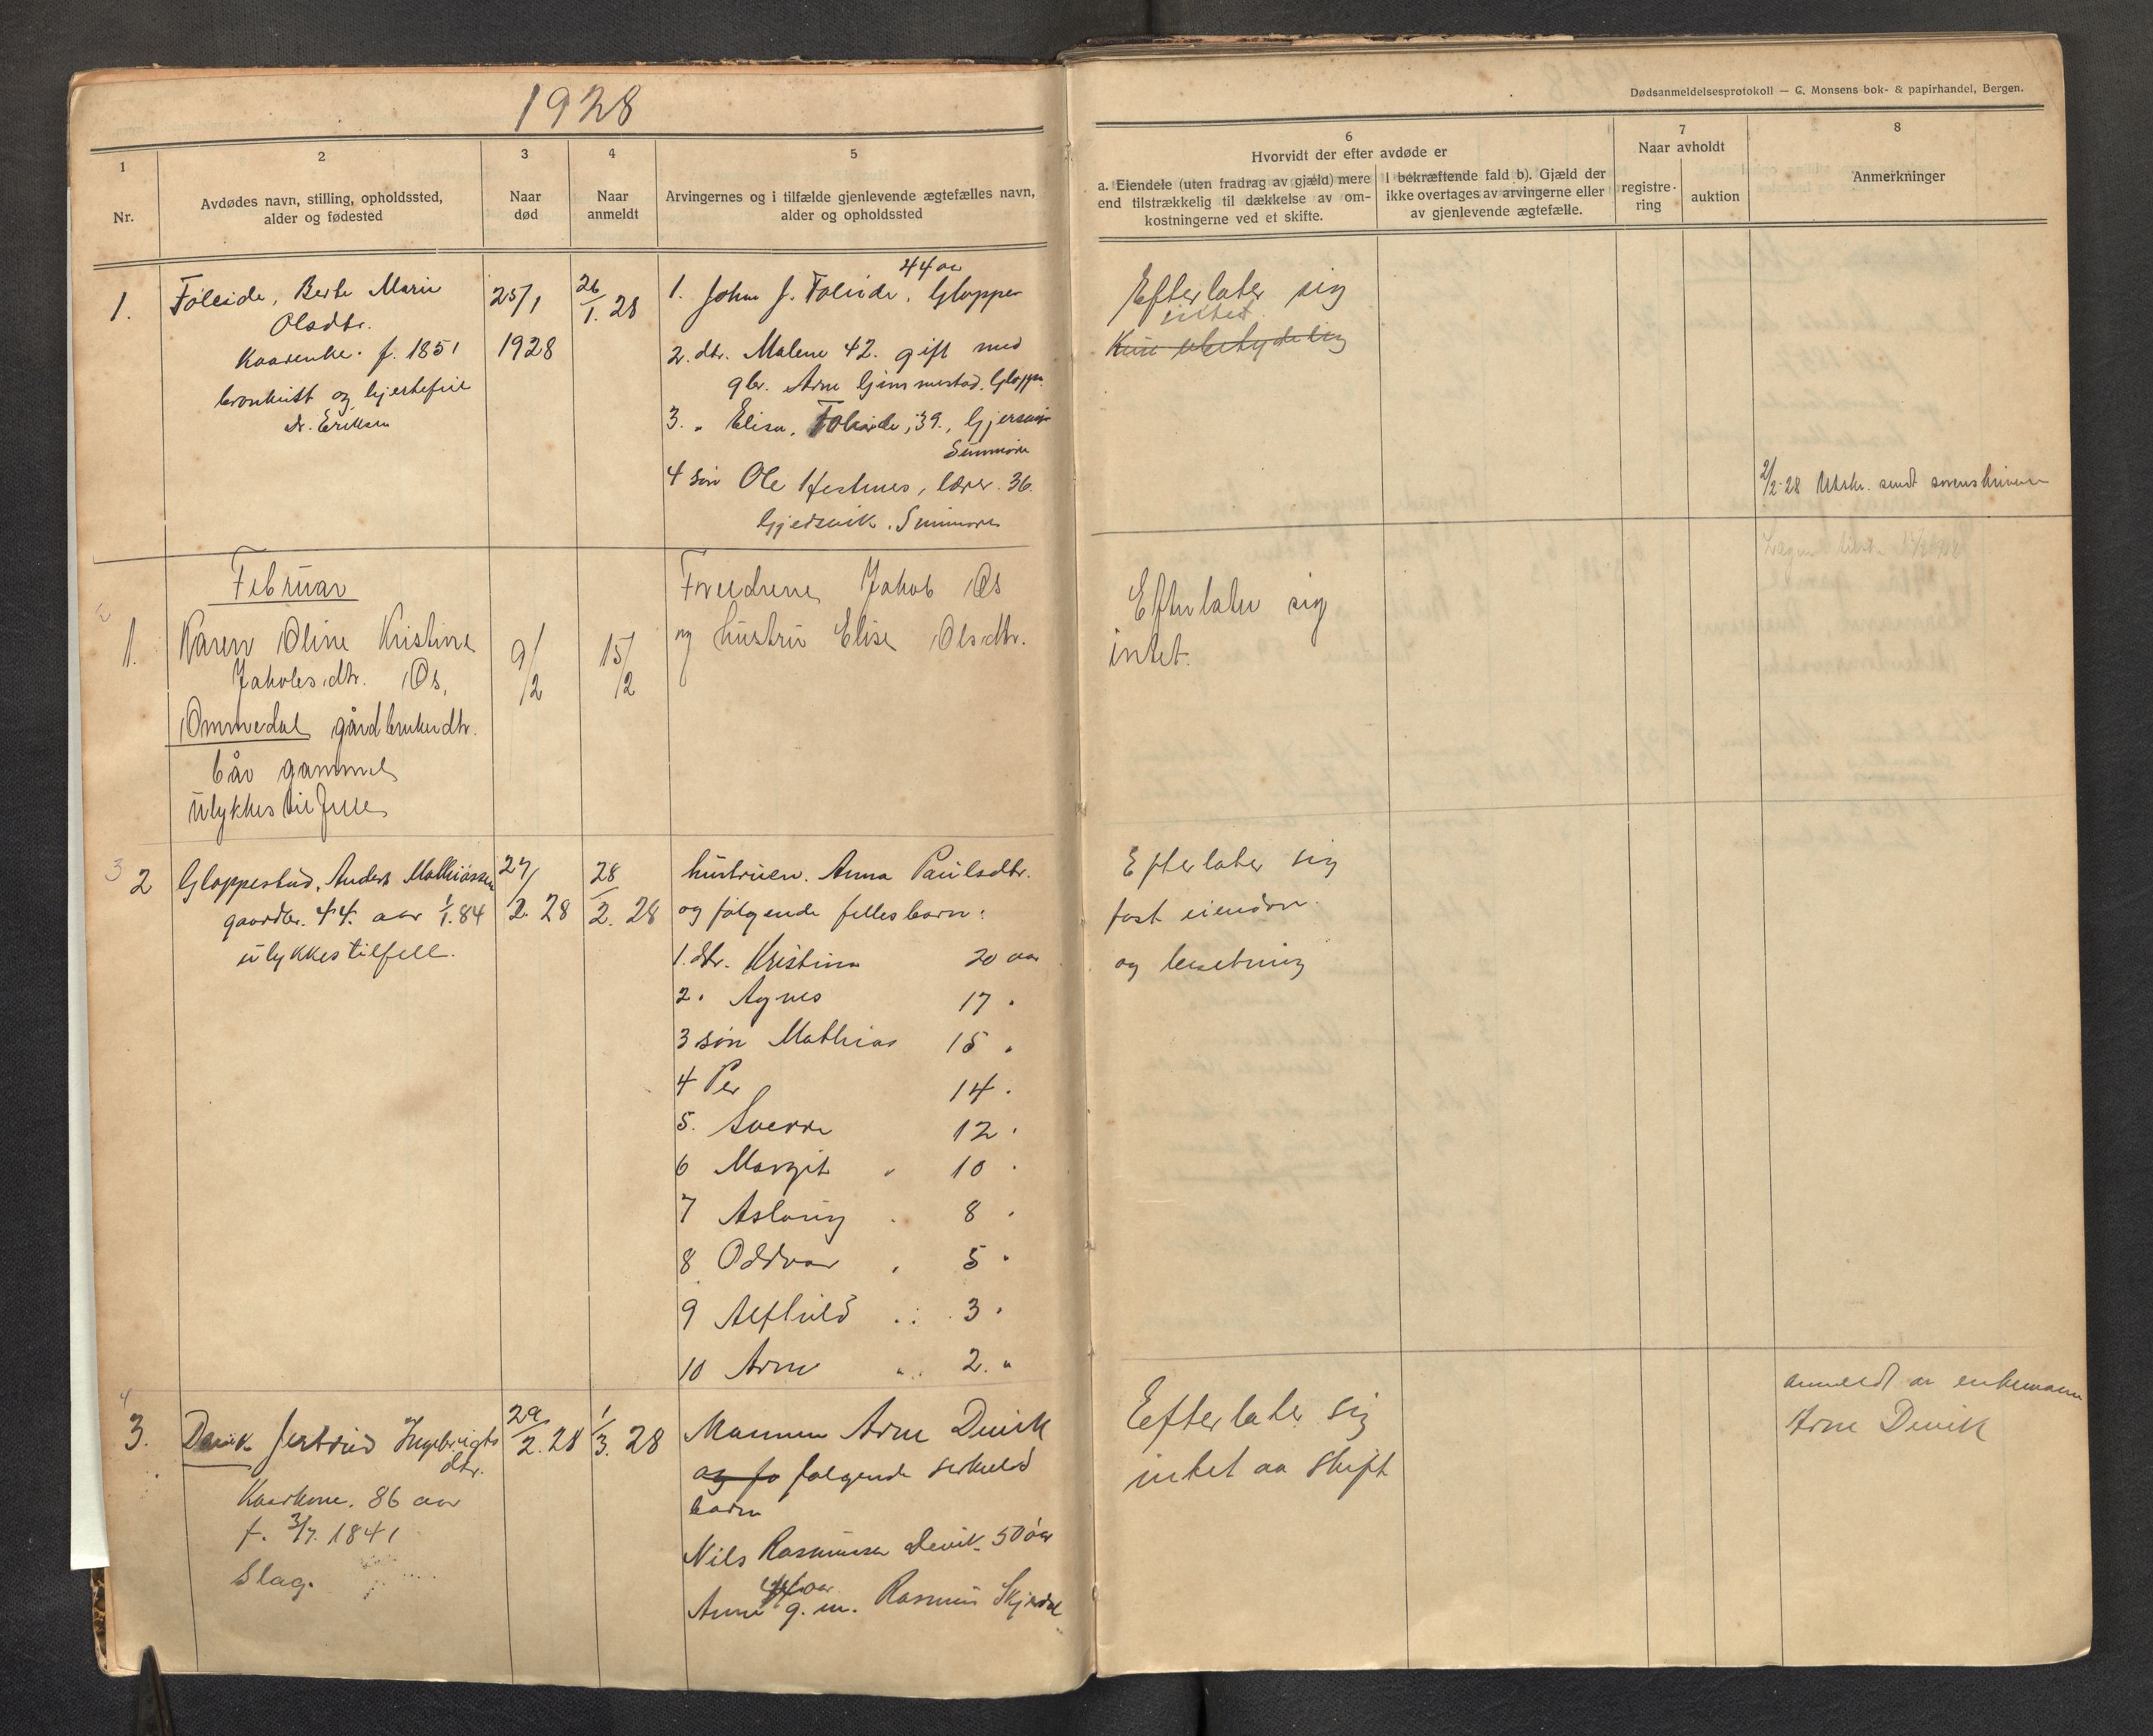 1928
Dødsanmeldelsesprotokoll — G. Monsens bok- & papirhandel, Bergen.
1
Nr.
2
Avdødes navn, stilling, opholdssted,
alder og fødested
3
Naar
død
4
Naar
anmeldt
5
Arvingernes og i tilfælde gjenlevende ægtefælles navn,
alder og opholdssted
6
Hvorvidt der efter avdøde er
a. Eiendele (uten fradrag av gjæld) mere
end tilstrækkelig til dækkelse av om-
kostningerne ved et skifte.
I bekræftende fald b). Gjæld der
ikke overtages av arvingerne eller
av gjenlevende ægtefælle.
7
Naar avholdt
registre-
ring
auktion
8
Anmerkninger
1.
Føleide, Berte Marie
Olsdtr.
Kaarenke. f. 1851
bronkitt og hjertefeil
dr. Eriksen
25/1
1928
26/1. 28
44 aar
1. Johan J. Føleide, Gloppen
2. dtr. Malene 42. gift med
gbr. Arne Gimmestad. Gloppen
3. " Elisa, Føleide, 39.,
Sunmøre
4 søn Ole Hestnes, lærer 36.
Gjedsvik. Sunmøre
Efterlater sig
intet.
Kun ubetydelig
2/2-28 Utskr. sendt sorenskriveren
Februar
1.
Karen Oline Kristine
Jakobsdtr. Os,
Ommedal gårdbrukerdtr.
6 år gammel
Ulykkestilfelle
9/2
15/2
Foreldrene Jakob Os
og hustru Elise Olsdtr.
Efterlater sig
intet.
3
2
Gloppestad, Anders Mathiassen
gaardbr. 44. aar 1/1. 84
ulykkestilfell.
27/2. 28
28/2. 28
hustruen. Anna Paulsdtr.
og følgende felles barn:
1. dtr. Kristina 20 aar
2. Agnes 17 "
3 søn Mathias 15 "
4 Per 14 "
5. Sverre 12 "
6 Margit " 10 "
7 Aslaug " 8 "
8 Oddvar " 5 "
9 Alfhild " 3 "
10 Arne " 2. "
Efterlater sig
fast eiendom
og besetning
4
3.
Devik Jertrud Ingebrigts
dtr.
Kaarkone. 86 aar
f. 3/7. 1841
Slag.
29/2. 28
1/3. 28
Mannen Arne Devik
og fø følgende serkuld
barn
Nils Rasmussen Devik. 50 aar
Anne g. m. Rasmus Skjerdal
Efterlater sig
intet aa skift
anmeldt av enkemann
Arne Devik